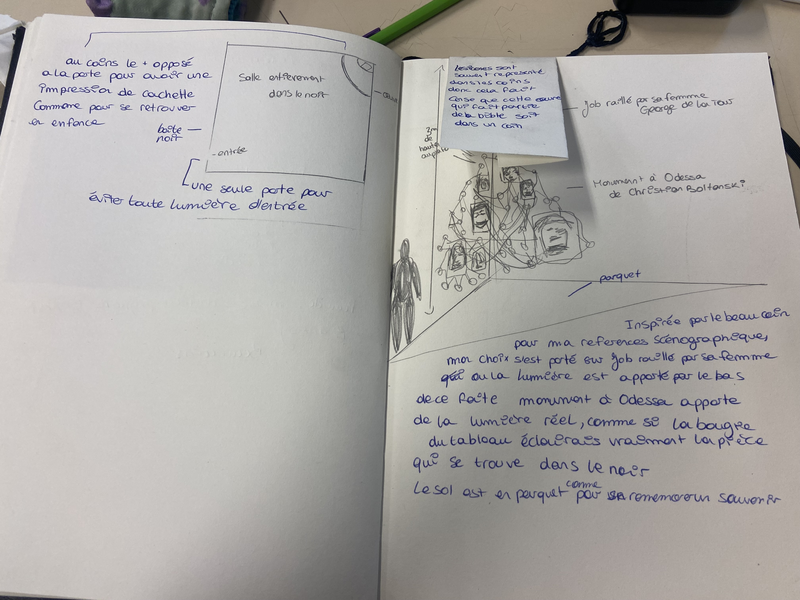 au coins le + opposé
a la porte pour avoir une
impression de cachette
Comome pour se retrouver
en enfance
Salle entièrement
dans le noir
boîte
noir
entrée
une seule porte pour
éviter toute lumière d'entrée
sont
souvent représenté
dans les coins
donc cela fait
sense que cette œuvre
qui fait partie
de la bible soit
dans un coin
Job raillé par sa femmme
George de la Tour
3m
de
hauteur
Monument à Odessa
de Christian Boltanski
parquet
Inspirée par le beau coin
pour ma references scénographique,
mon choix s'est porté sur Job raillé par sa femmme
ou la lumière est apporté par le bas
de ce faite monument à Odessa apporte
de la lumière réel, comme si la bougie
du tableau éclairais vraiment la pièce
qui se trouve dans le noir
Le sol est en parquet comme pour rememorer un souvenir